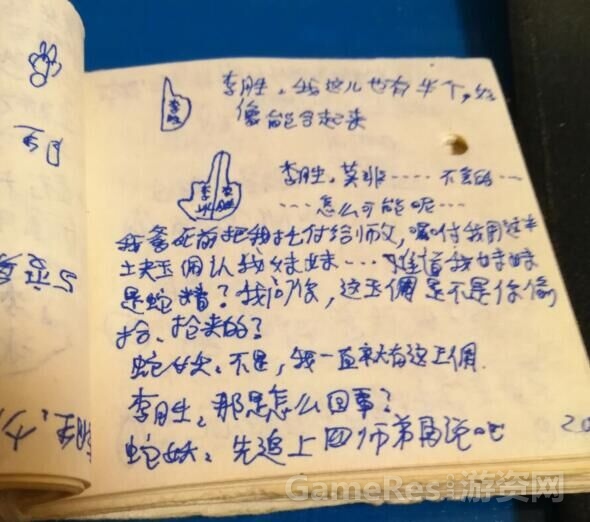 李胜，我这儿也有半个，好
像能合起来
李胜
李胜，莫非……不会的…
…怎么可能呢…
李 李
冰 胜
我爹死前把我托付给师父，嘱付我用这半
块玉佣认我妹妹…难道我妹妹
是蛇精？我问你，这玉佣是不是你偷
抢、抢来的？
蛇妖：不是，我一直就有这玉佣
李胜：那是怎么回事？
蛇妖：先追上四师弟再说吧
20
GameRes游资网